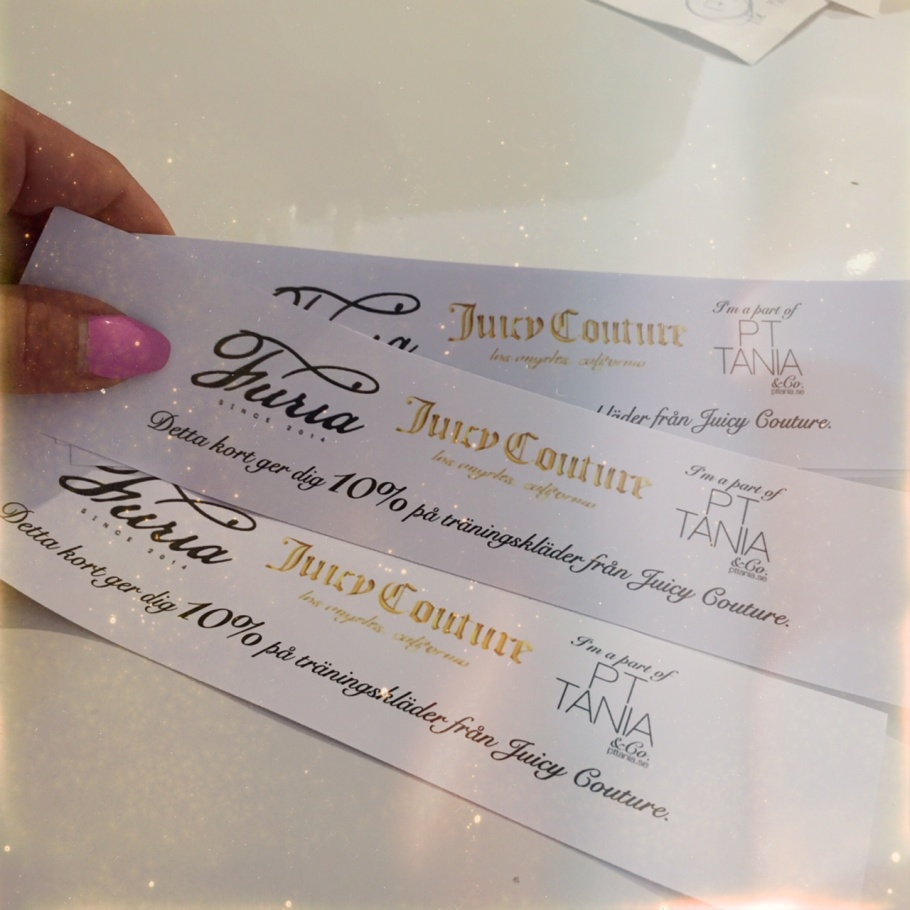 Juicy Couture
los angeles, california
I'm a part of
PT
TANIA
&Co.
pttania.se
kläder från Juicy Couture.
Furia
SINCE 2014
Juicy Couture
los angeles, california
I'm a part of
PT
TANIA
&Co.
pttania.se
Detta kort ger dig 10% på träningskläder från Juicy Couture.
Furia
SINCE 2014
Juicy Couture
los angeles, california
I'm a part of
PT
TANIA
&Co.
pttania.se
Detta kort ger dig 10% på träningskläder från Juicy Couture.